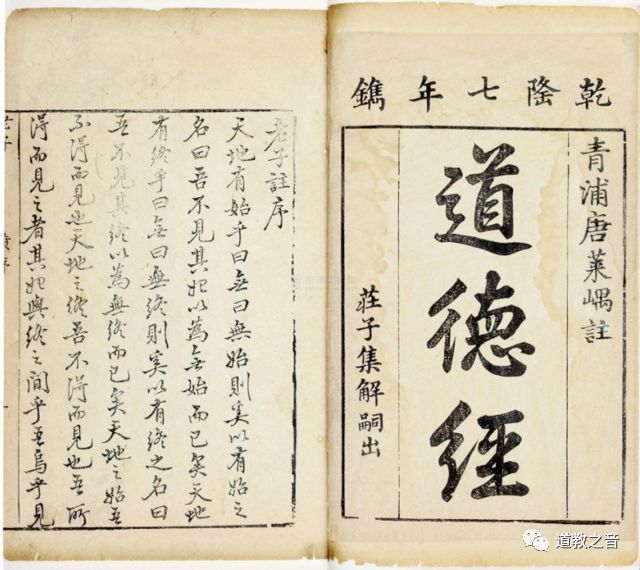 乾隆七年鐫
青浦唐萊嵎註
道德經
莊子集解嗣出
老子註序
天地有始乎曰无曰無始則奚以有始之
名曰吾不見其始以為无始而已矣天地
有終乎曰无曰無終則奚以有終之名曰
吾不見其終以為無終而已矣天地之始吾
不得而見也天地之終吾不得而見也吾所
得而見之者其始與終之間乎吾烏乎見
道教之音